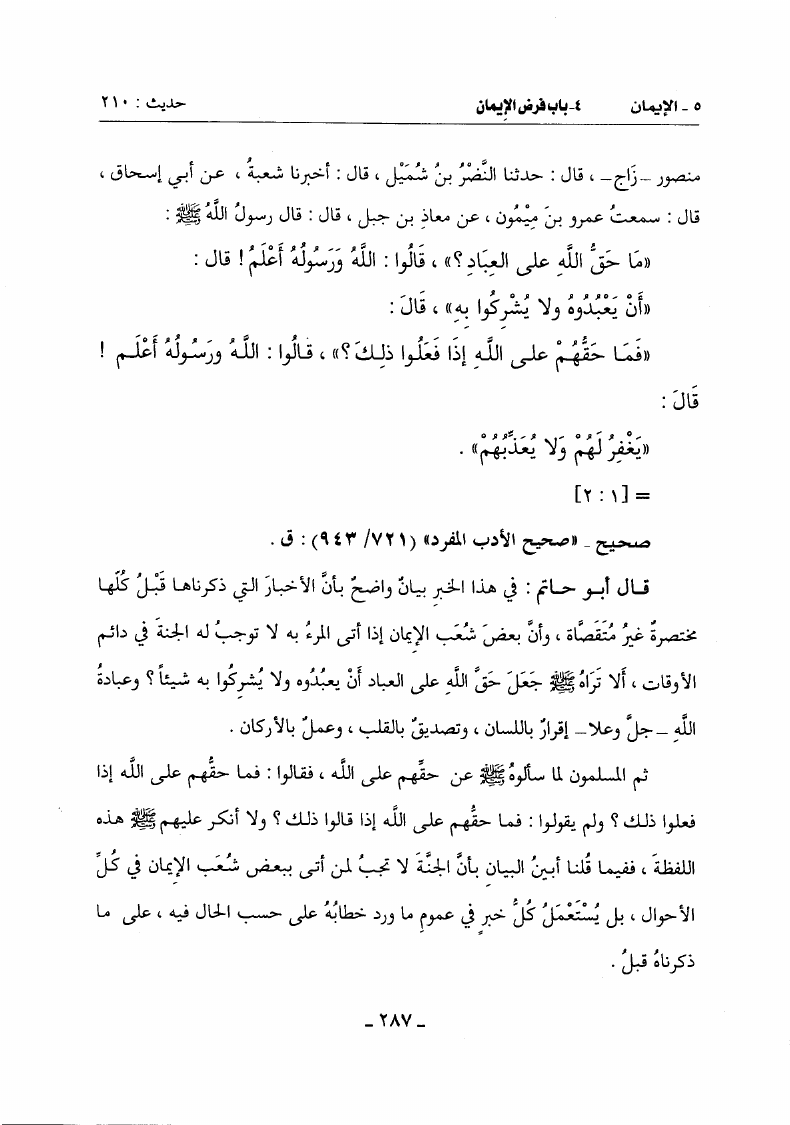 ٥ ـ الإيمان ٤ـ باب فرض الإيمان حديث : ٢١٠
منصور ـ زَاج ـ ، قال : حدثنا النَّضْرُ بنُ شُمَيْل ، قال : أخبرنا شعبةُ ، عن أبي إسحاق ،
قال : سمعتُ عمرو بنَ مِيْمُون ، عن معاذِ بن جبل ، قال : قال رسولُ اللَّهِ ﷺ :
«مَا حَقُّ اللَّهِ على العِبَادِ ؟» ، قَالُوا : اللَّهُ وَرَسُولُهُ أَعْلَمُ ! قال :
«أَنْ يَعْبُدُوهُ ولا يُشْرِكُوا بِهِ» ، قَالَ :
«فَمَا حَقُّهُمْ على اللَّهِ إِذَا فَعَلُوا ذلِكَ ؟» ، قَالُوا : اللَّهُ ورَسُولُهُ أَعْلَم !
قَالَ :
«يَغْفِرُ لَهُمْ وَلا يُعَذِّبُهُمْ» .
= [١ : ٢]
صحيح ـ «صحيح الأدب المفرد» (٧٢١/ ٩٤٣) : ق .
قال أبو حاتم : في هذا الخبرِ بيانٌ واضحٌ بأنَّ الأخبارَ التي ذكرناها قَبْلُ كُلَّها
مختصرةٌ غيرُ مُتَقَصَّاة ، وأنَّ بعضَ شُعَبِ الإيمان إذا أتى المرءُ به لا توجبُ له الجنةَ في دائم
الأوقات ، أَلا تَرَاهُ ﷺ جَعَلَ حَقَّ اللَّهِ على العباد أَنْ يعبُدُوه ولا يُشركُوا به شيئاً ؟ وعبادةُ
اللَّهِ ـ جلَّ وعلا ـ إقرارٌ باللسان ، وتصديقٌ بالقلب ، وعملٌ بالأركان .
ثم المسلمون لما سألوهُ ﷺ عن حقِّهم على اللَّه ، فقالوا : فما حقُّهم على اللَّه إذا
فعلوا ذلك ؟ ولم يقولوا : فما حقُّهم على اللَّه إذا قالوا ذلك ؟ ولا أنكر عليهم ﷺ هذه
اللفظةَ ، ففيما قُلنا أبينُ البيان بأنَّ الجنَّةَ لا تجبُ لمن أتى ببعض شُعَبِ الإيمان في كُلِّ
الأحوال ، بل يُسْتَعْمَلُ كلُّ خبرٍ في عمومِ ما ورد خطابُهُ على حسب الحال فيه ، على ما
ذكرناهُ قبلُ .
ـ ٢٨٧ ـ